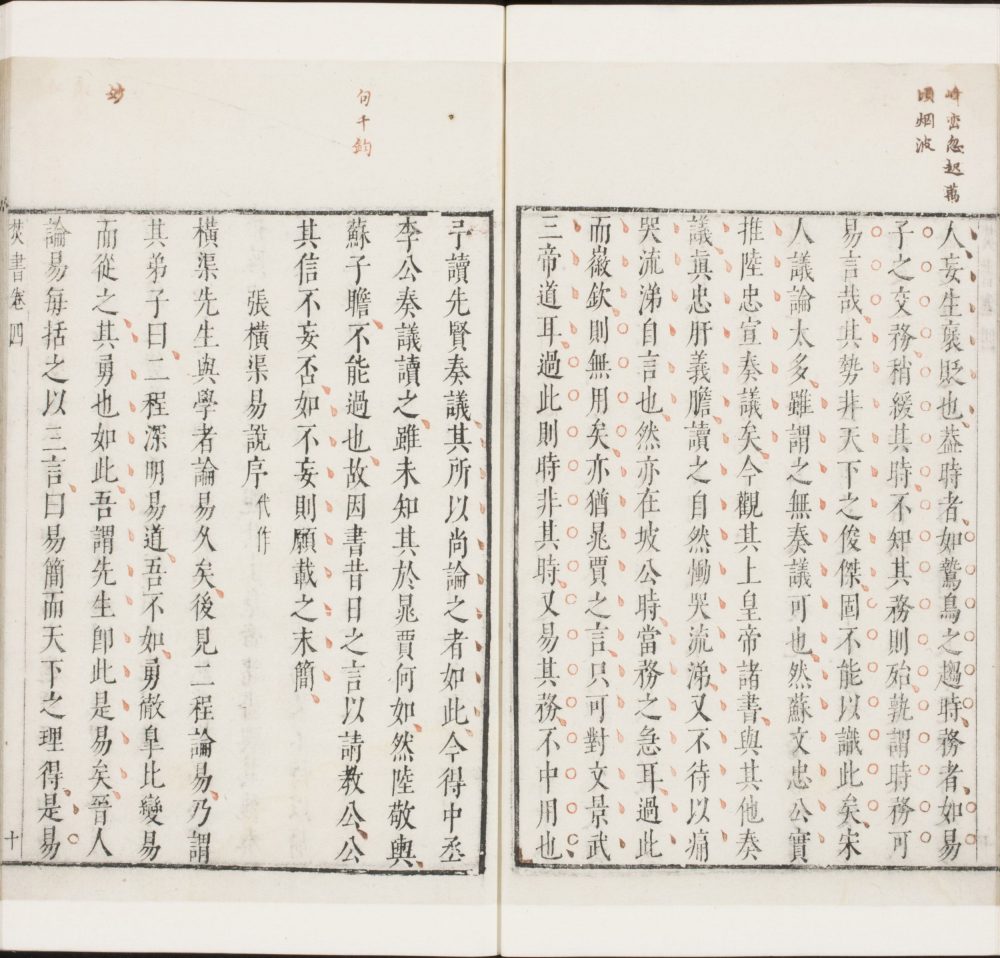 峰巒忽起萬
頃烟波
人妄生褒貶也葢時者如鷙鳥之趨時務者如易
子之交務稍緩其時不知其務則殆孰謂時務可
易言哉其勢非天下之俊傑固不能以識此矣宋
人議論太多雖謂之無奏議可也然蘇文忠公實
推陸忠宣奏議矣今觀其上皇帝諸書與其他奏
議真忠肝義膽讀之自然慟哭流涕又不待以痛
哭流涕自言也然亦在坡公時當務之急耳過此
而徽欽則無用矣亦猶晁賈之言只可對文景武
三帝道耳過此則時非其時又易其務不中用也
句千鈞
妙
予讀先賢奏議其所以尚論之者如此今得中丞
李公奏議讀之雖未知其於晁賈何如然陸敬輿
蘇子瞻不能過也故因書昔日之言以請教公公
其信不妄否如不妄則願載之末簡
張橫渠易說序代作
橫渠先生與學者論易久矣後見二程論易乃謂
其弟子曰二程深明易道吾不如勇撤皐比變易
而從之其勇也如此吾謂先生卽此是易矣晉人
論易每括之以三言曰易簡而天下之理得是易
焚書卷四
十